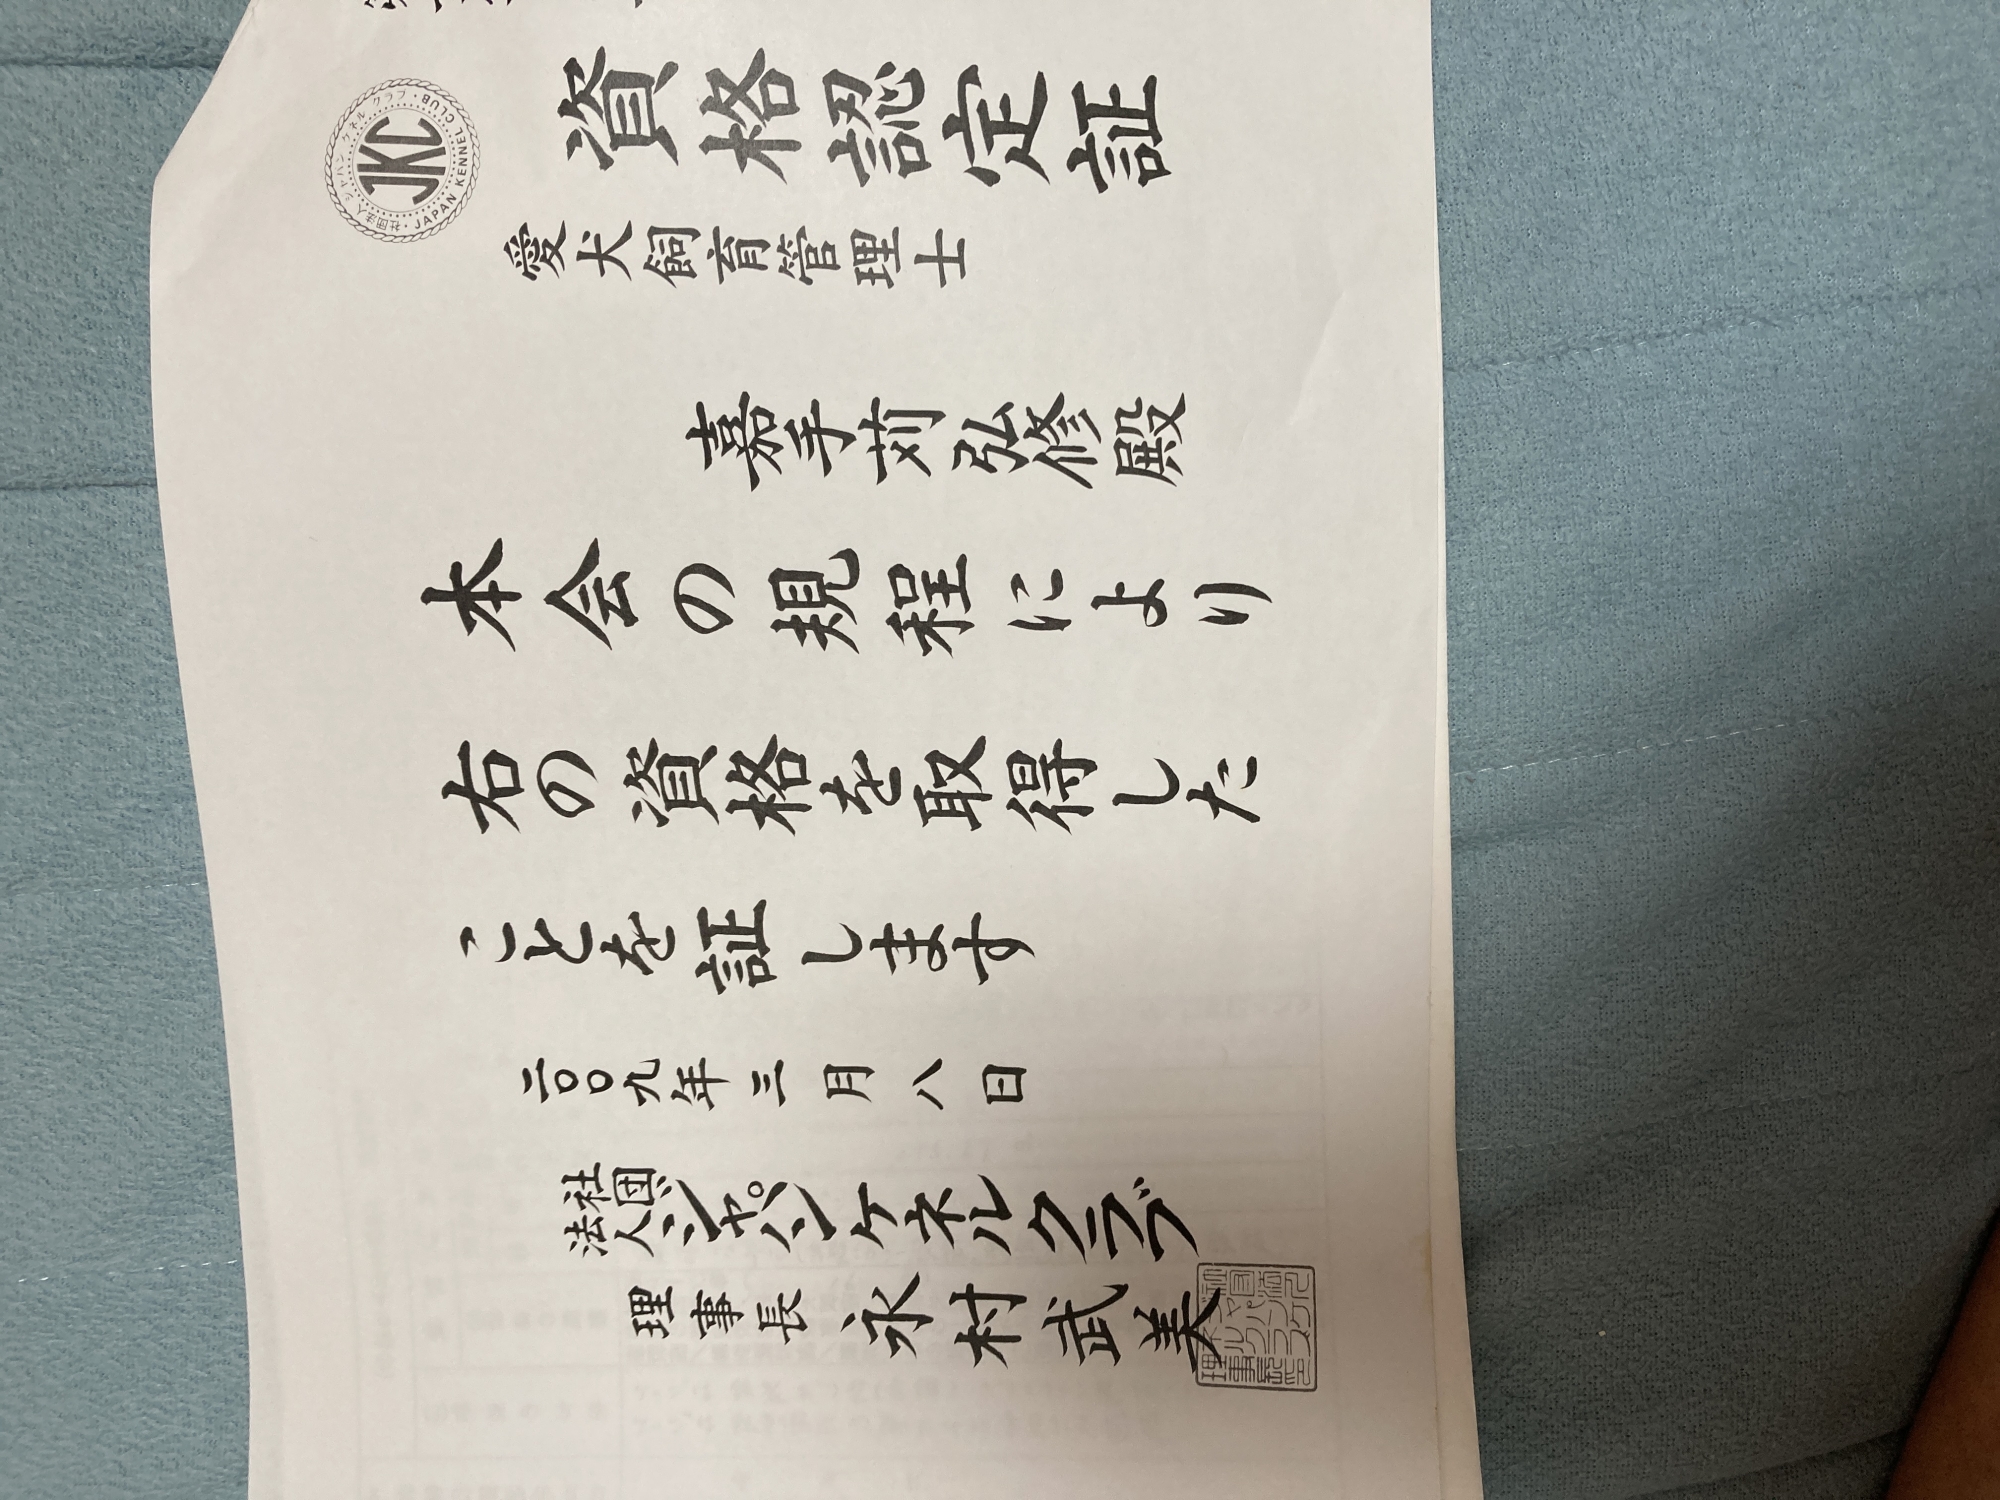 資格認定証
愛犬飼育管理士
嘉手苅弘修殿
本会の規程により
右の資格を取得した
ことを証します
二〇〇九年三月八日
社団法人ジャパンケネルクラブ
理事長 永村武美
JKC
社団法人 ジャパン ケネル クラブ
JAPAN KENNEL CLUB